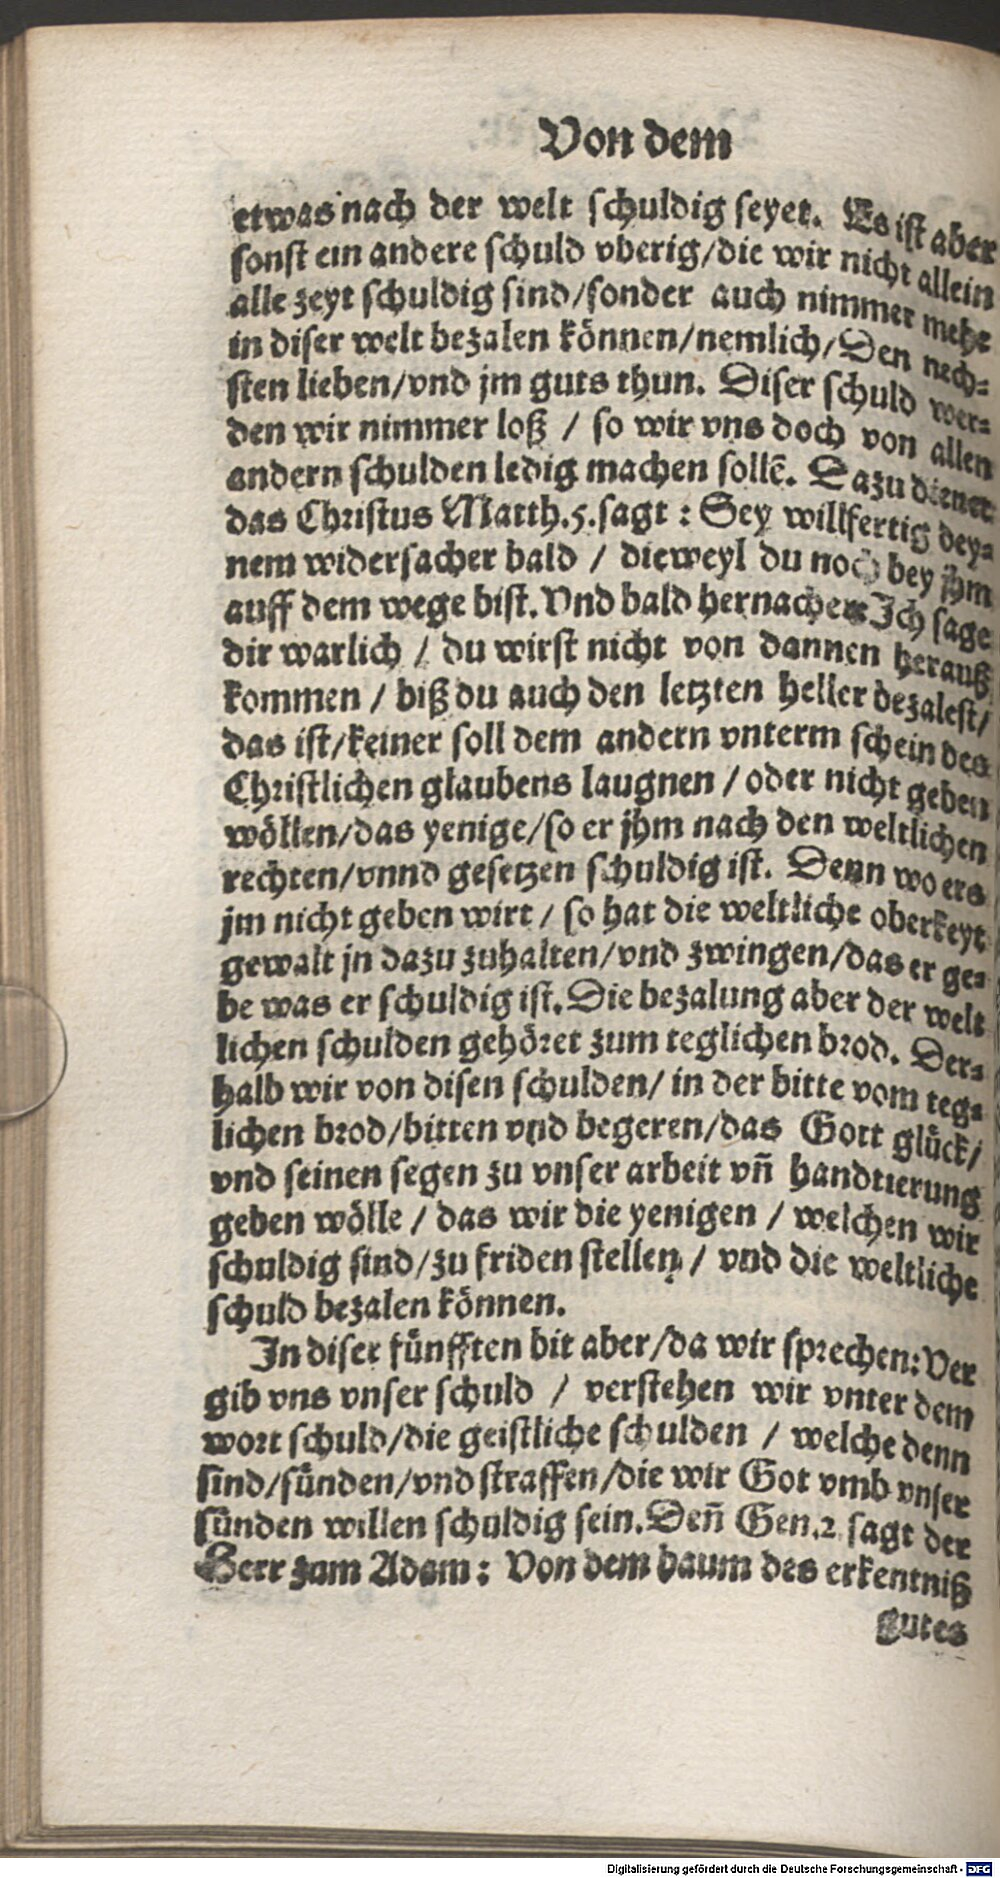 Von dem
etwas nach der welt schuldig seyet. Es ist aber
sonst ein andere schuld vberig/die wir nicht allein
alle zeyt schuldig sind/sonder auch nimmer mehe
in diser welt bezalen können/nemlich/Den nech-
sten lieben/vnd jm guts thun. Diser schuld wer-
den wir nimmer loß / so wir vns doch von allen
andern schulden ledig machen sollē. Dazu dienet
das Christus Matth.5.sagt : Sey willfertig dey-
nem widersacher bald / dieweyl du noch bey jhm
auff dem wege bist. Vnd bald hernacher: Jch sage
dir warlich / du wirst nicht von dannen herauß
kommen / biß du auch den letzten heller bezalest/
das ist/keiner soll dem andern vnterm schein des
Christlichen glaubens laugnen / oder nicht geben
wöllen/das yenige/so er jhm nach den weltlichen
rechten/vnnd gesetzen schuldig ist. Denn wo ers
jm nicht geben wirt / so hat die weltliche oberkeyt
gewalt jn dazu zuhalten/vnd zwingen/das er ge-
be was er schuldig ist. Die bezalung aber der welt
lichen schulden gehöret zum teglichen brod. Der-
halb wir von disen schulden/ in der bitte vom teg-
lichen brod/bitten vnd begeren/das Gott glück/
vnd seinen segen zu vnser arbeit vñ handtierung
geben wölle / das wir die yenigen / welchen wir
schuldig sind/zu friden stellen / vnd die weltliche
schuld bezalen können.
In diser fünfften bit aber/da wir sprechen: Ver
gib vns vnser schuld / verstehen wir vnter dem
wort schuld/die geistliche schulden / welche denn
sind/sünden/vnd straffen/die wir Got vmb vnser
sünden willen schuldig sein. Deñ Gen.2 sagt der
Herr zum Adam : Von dem baum des erkentniß
gutes
Digitalisierung gefördert durch die Deutsche Forschungsgemeinschaft - DFG